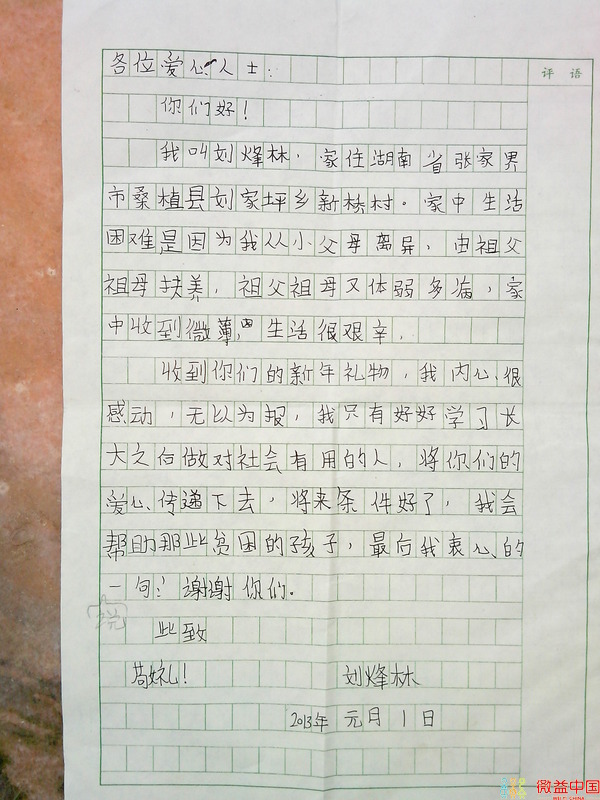 各位爱心人士：
评 语
你们好！
我叫刘烽林，家住湖南省张家界
市桑植县刘家坪乡新桥村。家中生活
困难是因为我从小父母离异，由祖父
祖母扶养，祖父祖母又体弱多病，家
中收到微薄，生活很艰辛．
收到你们的新年礼物，我内心很
感动，无以为报，我只有好好学习长
大之后做对社会有用的人，将你们的
爱心传递下去，将来条件好了，我会
帮助那些贫困的孩子，最后我衷心的
一句：谢谢你们．
此致
敬礼！ 刘烽林
2013年 元月 1日
微益中国